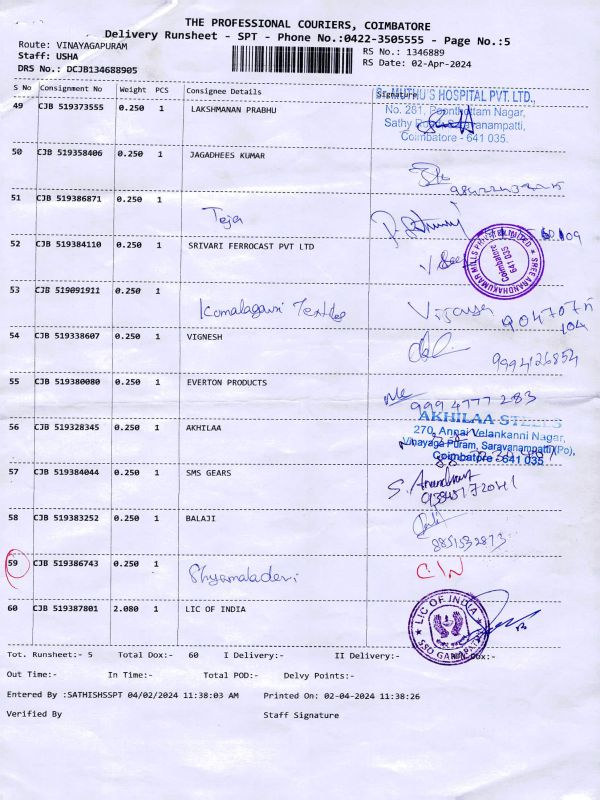 THE PROFESSIONAL COURIERS, COIMBATORE
Delivery Runsheet - SPT - Phone No.:0422-3505555 - Page No.:5
Route: VINAYAGAPURAM
Staff: USHA
DRS No.: DCJB134688905
RS No.: 1346889
RS Date: 02-Apr-2024
S No Consignment No Weight PCS Consignee Details Signature
49 CJB 519373555 0.250 1 LAKSHMANAN PRABHU
HOSPITAL PVT. LTD.,
No. 281, Poonthottam Nagar,
Sathy Road, Saravanampatti,
Coimbatore - 641 035.
50 CJB 519358406 0.250 1 JAGADHEES KUMAR
51 CJB 519386871 0.250 1 Teja
52 CJB 519384110 0.250 1 SRIVARI FERROCAST PVT LTD
Coimbatore
641 035
53 CJB 519091911 0.250 1 Komalagowri Textiles
54 CJB 519338607 0.250 1 VIGNESH
9994126854
55 CJB 519380080 0.250 1 EVERTON PRODUCTS
9994777283
56 CJB 519328345 0.250 1 AKHILAA
AKHILAA STEELS
270, Annai Velankanni Nagar,
Vinayaga Puram, Saravanampatti(Po),
Coimbatore - 641 035
57 CJB 519384044 0.250 1 SMS GEARS
58 CJB 519383252 0.250 1 BALAJI
59 CJB 519386743 0.250 1 Shyamaladevi
60 CJB 519387801 2.080 1 LIC OF INDIA
LIC OF INDIA
Tot. Runsheet:- 5 Total Dox:- 60 I Delivery:- II Delivery:-
Out Time:- In Time:- Total POD:- Delvy Points:-
Entered By :SATHISHSSPT 04/02/2024 11:38:03 AM Printed On: 02-04-2024 11:38:26
Verified By Staff Signature